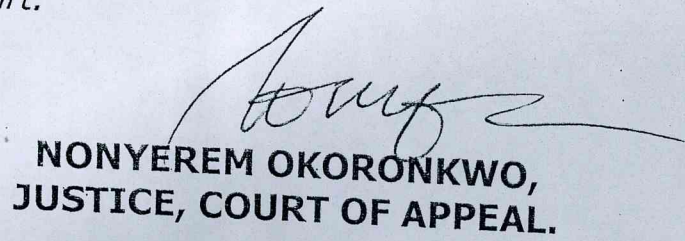 NONYEREM OKORONKWO,
JUSTICE, COURT OF APPEAL.